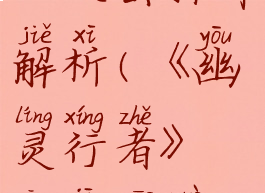 jiě xī yōu
解析(《幽
líng xíng zhě
灵行者》